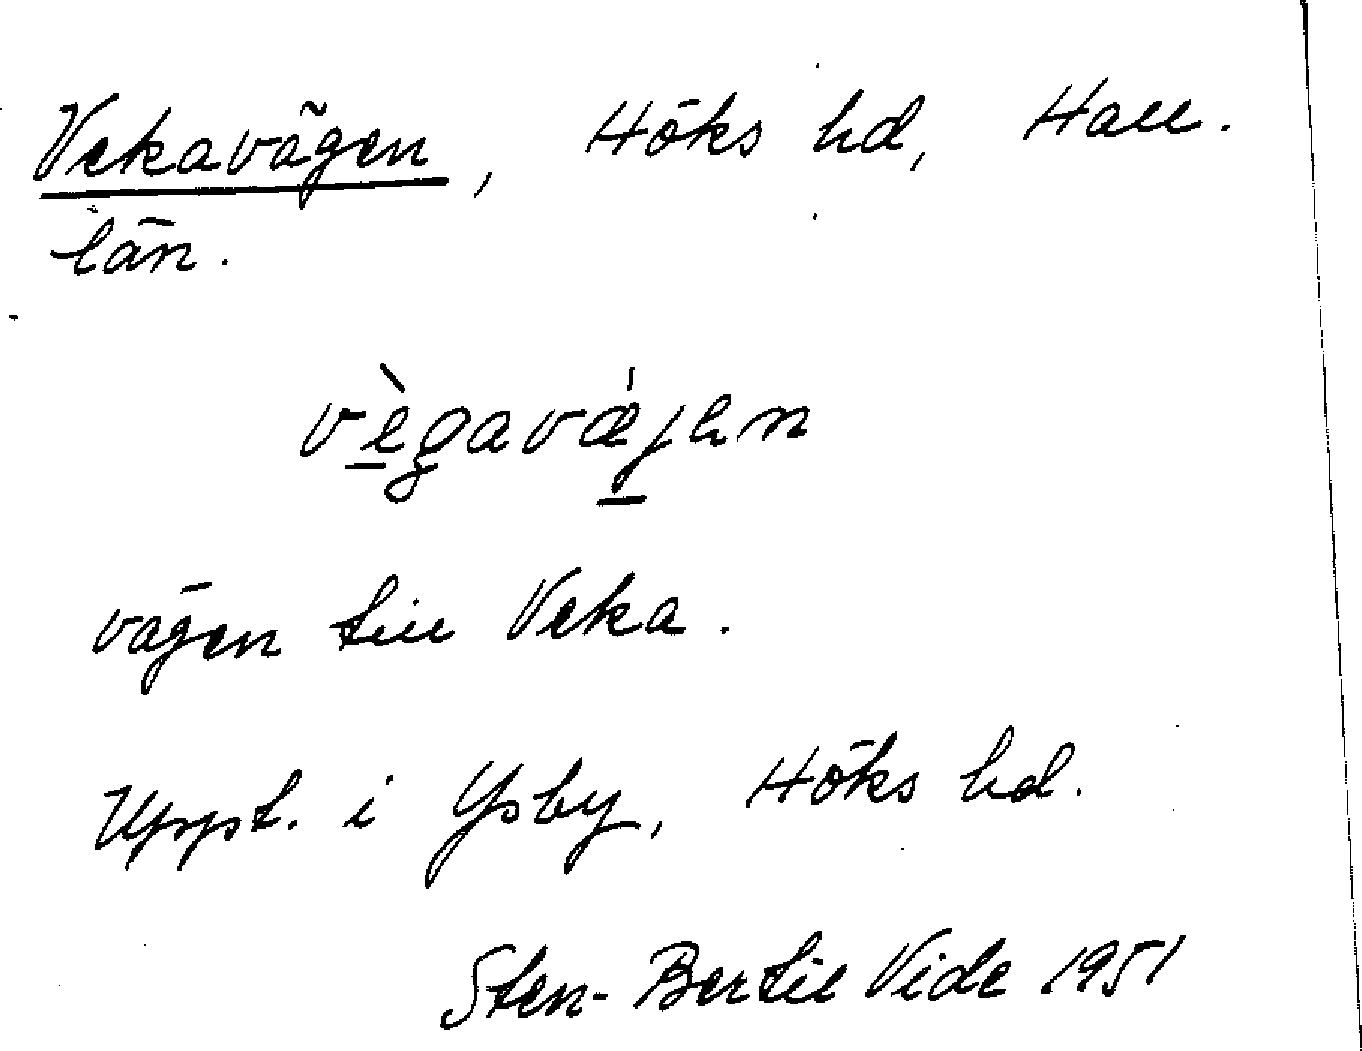 Vekavägen, Höks hd, Hall.
län.
vègavǽjen
vägen till Veka.
Uppt. i Ysby, Höks hd.
Sten-Bertil Vide 1951